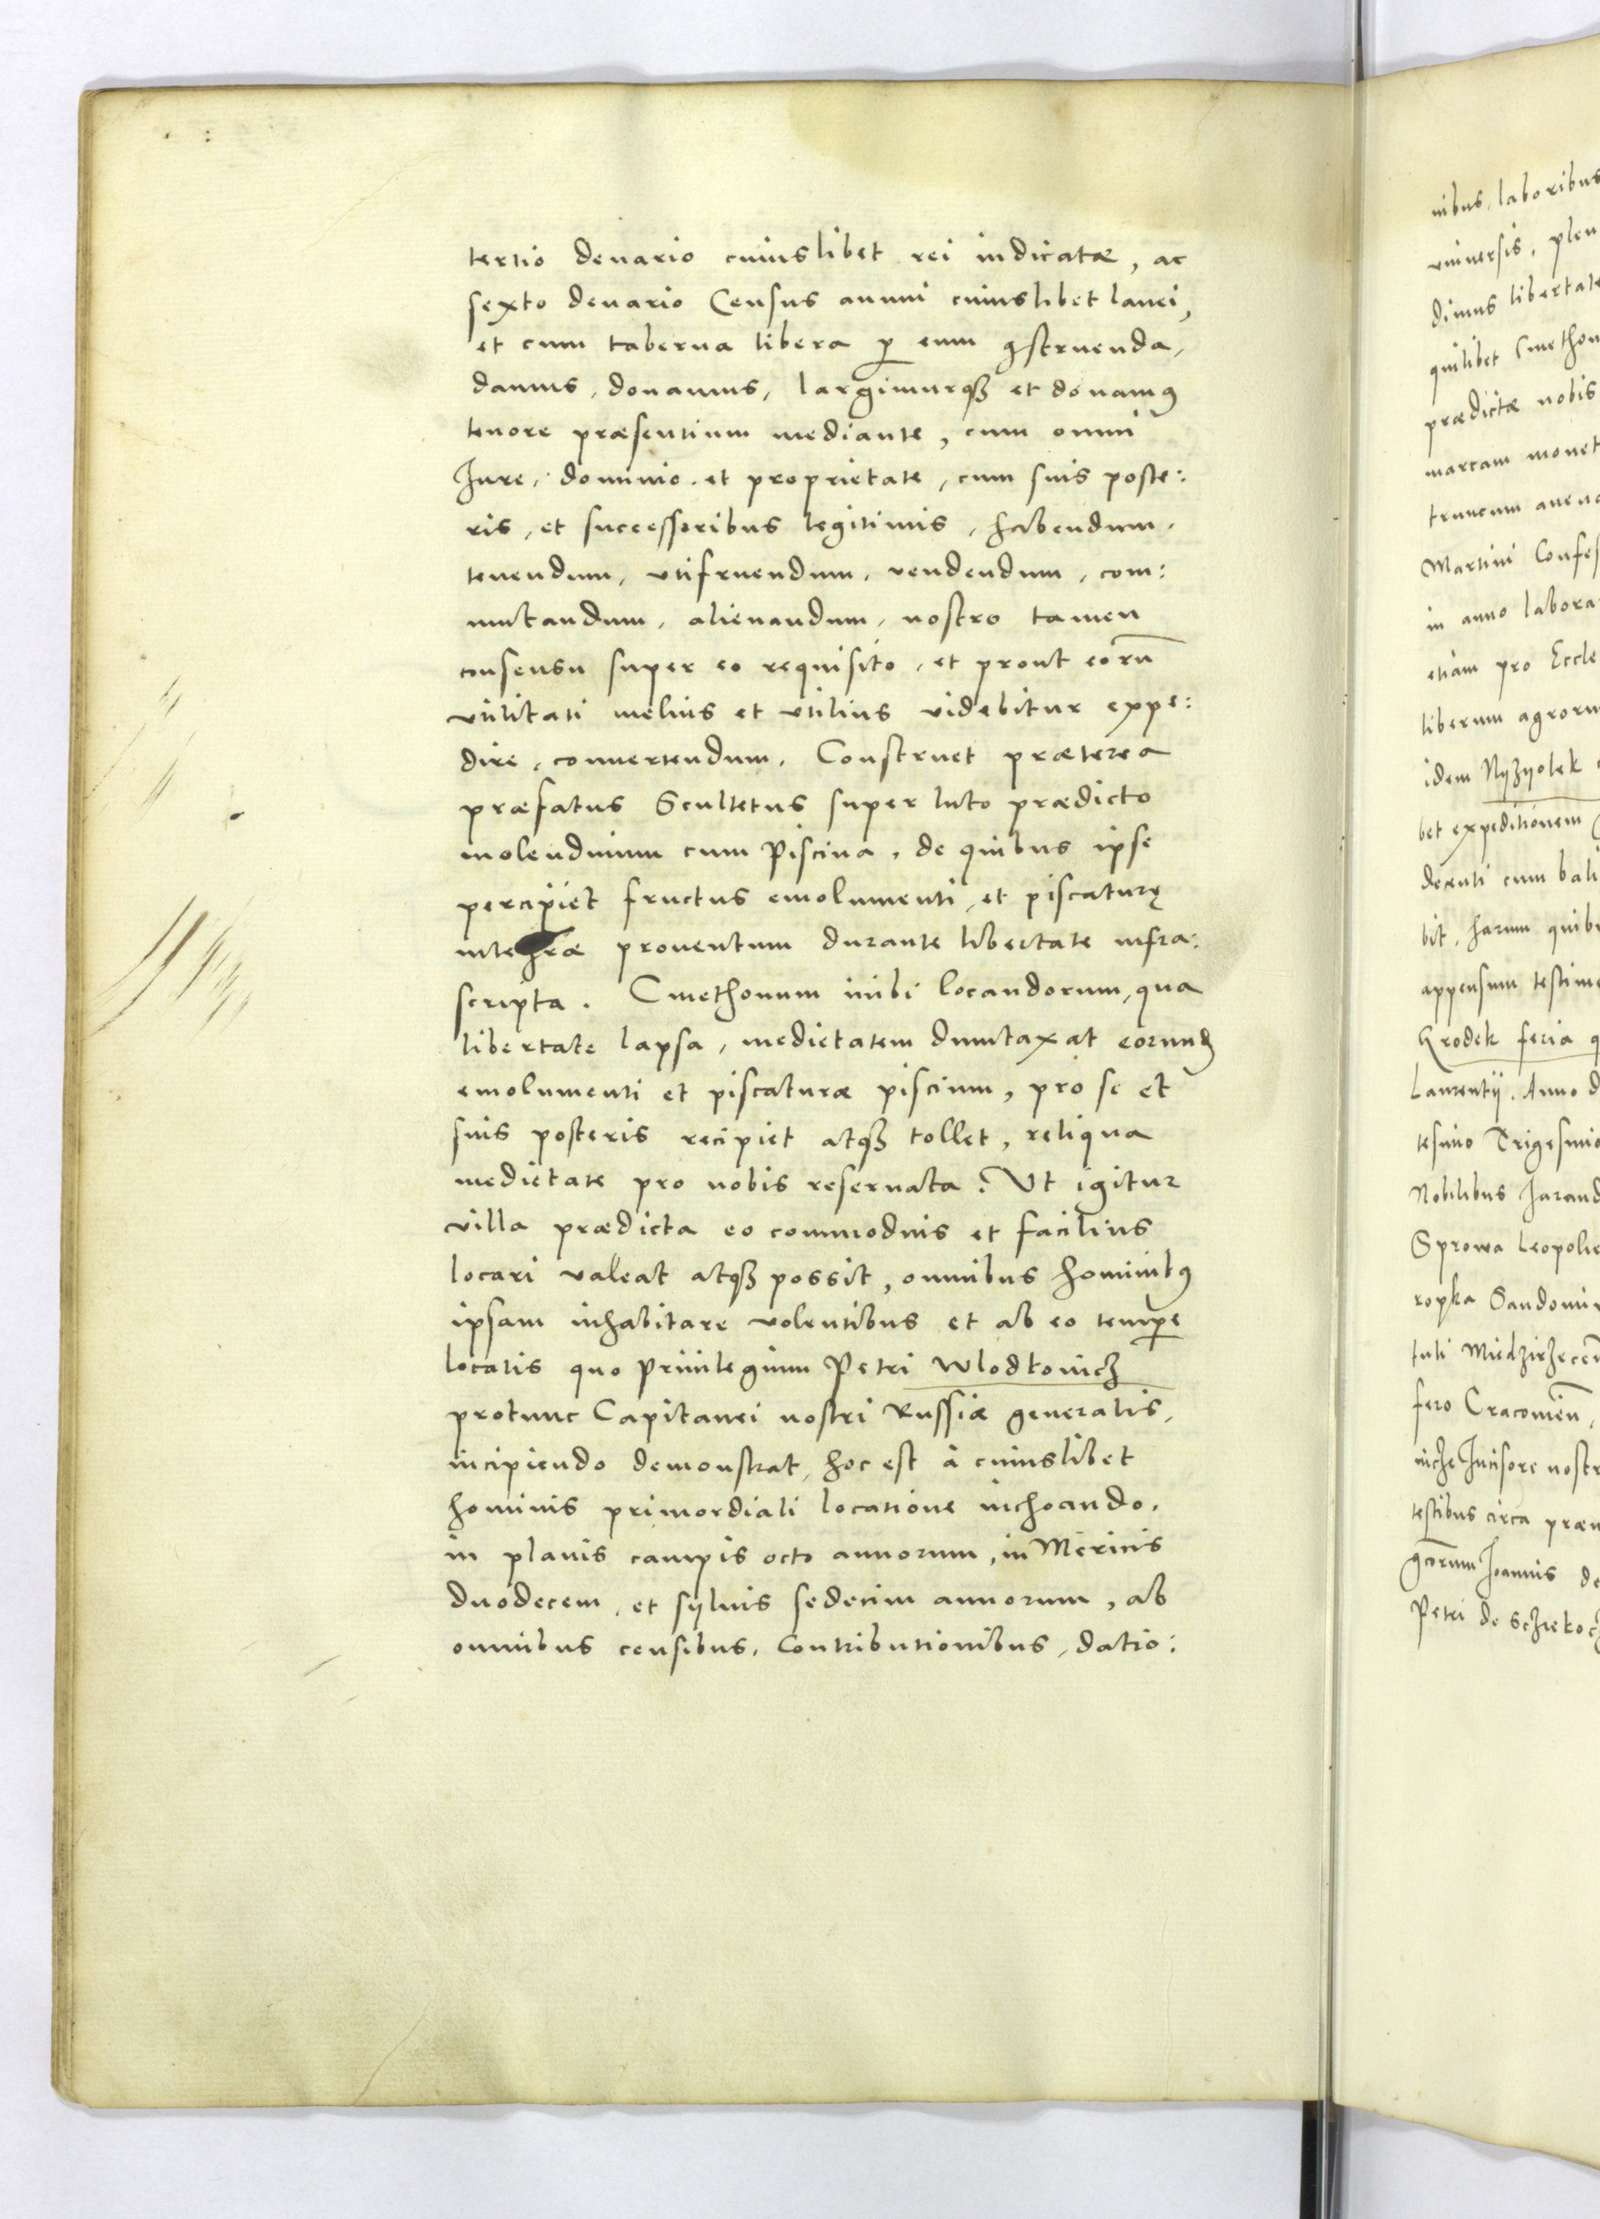 tertio denario cuiuslibet rei iudicatæ, ac
sexto denario Census annui cuiuslibet lanei,
et cum taberna libera ꝑ eum ꝯstruenda,
damus, donamus, largimurqꝫ et donamꝰ
tenore præsentium mediante, cum omni
Jure, dominio et proprietate, cum suis poste:
ris, et successoribus legitimis, habendum,
tenendum, vtifruendum, vendendum, com:
mutandum, alienandum, nostro tamen
consensu super eo requisito, et prout eorū
vtilitati melius et vtilius videbitur expe:
dire, conuertendum. Construet præterea
præfatus Scultetus super luto prædicto
molendinum cum Piscina, de quibus ipse
percipiet fructus emolumenti, et piscaturę
integræ prouentum durante libertate infra:
scripta. Cmethonum inibi locandorum, qua
libertate lapsa, medietatem duntaxat eorundꝫ
emolumenti et piscaturæ piscium, pro se et
suis posteris recipiet atqꝫ tollet, reliqua
medietate pro nobis reseruata. Vt igitur
villa prædicta eo commodius et facilius
locari valeat atqꝫ possit, omnibus hominibꝰ
ipsam inhabitare volentibus et ab eo tempꝑe
locatis quo Priuilegium Petri Wlodkouicz
protunc Capitanei nostri Russiæ generalis,
incipiendo demonstrat, hoc est à cuiuslibet
hominis primordiali locatione inchoando,
in planis campis octo annorum, in Mericis
duodecem, et syluis sedecim annorum, ab
omnibus censibus, Contributionibus, datio:
nibus, laboribus
vniuersis, plen
dimus libertate
quilibet Cmethon
prædictæ nobis
marcam monet
truncum auena
Martini Confes
in anno labora
etiam pro Eccle
liberum agroru
idem Nyzyolek
bet expeditionem
decenti cum bali
bit, harum quib
appensum testimo
Grodek feria q
Laurentij. Anno d
tesimo Trigesimo
Nobilibus Jarand
Sprowa Leopolie
ropka Sandomir
tuti Miedzirzecen̄
fero Cracouien̄,
Incisore nostr
testibus circa præm
Joannis de
Petri de Sczekocz